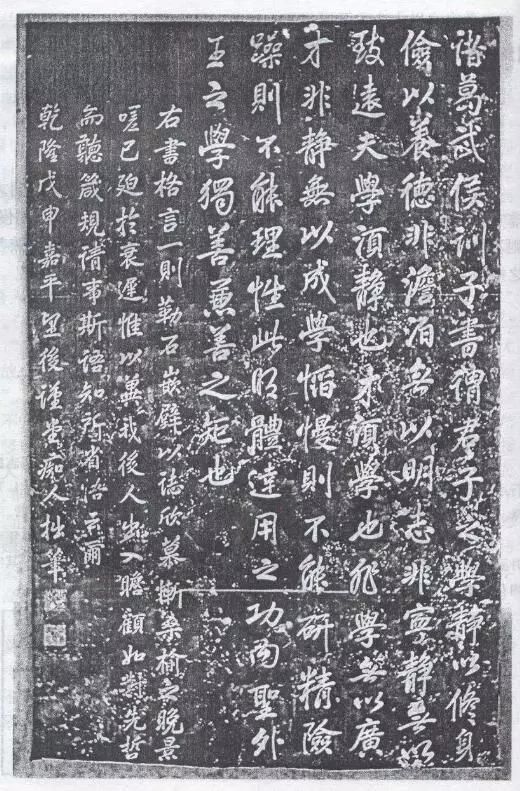 諸葛武侯訓子書謂君子之學靜以脩身
儉以養德非澹泊無以明志非寧靜無以
致遠夫學須靜也才須學也非學無以廣
才非靜無以成學慆慢則不能研精險
躁則不能理性此明體達用之功內聖外
王之學獨善兼善之矩也
右書格言一則勒石嵌壁以誌欣慕慚桑榆之晚景
嗟已廹於衰遲惟以冀我後人出入瞻顧如對先哲
而聽箴規請事斯語知所省治云爾
乾隆戊申嘉平望後謹堂痴人拙筆